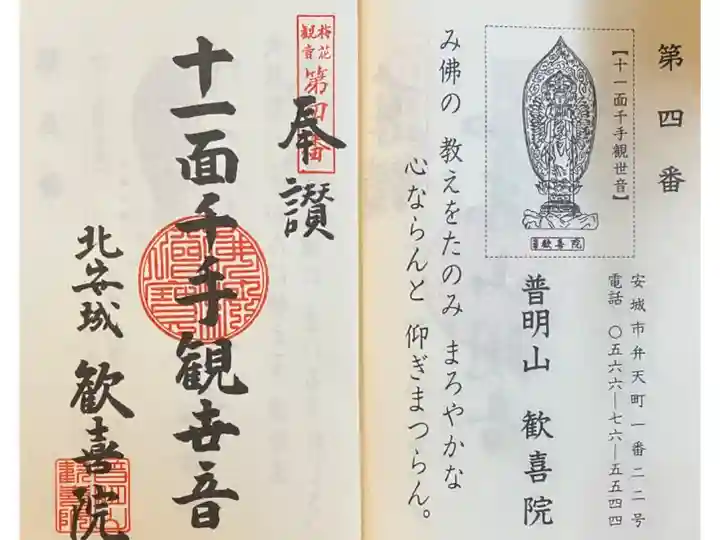 第四番
【十一面千手観世音】
歓喜院
安城市弁天町一番二二号
電話 〇五六六―七六―五五四四
普明山 歓喜院
み佛の 教えをたのみ まろやかな
心ならんと 仰ぎまつらん。
梅花
観音
第四番
奉讃
十一面千手観世音
北安城 歓喜院